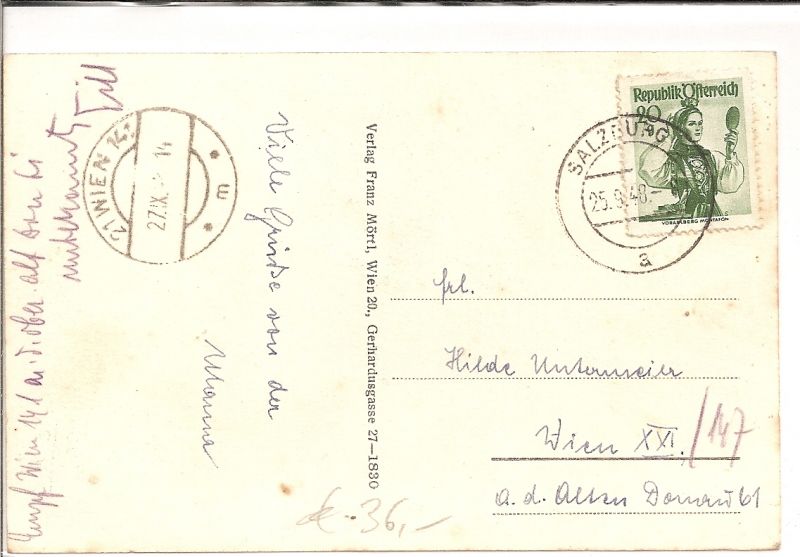 Viele Grüße von der
Mama
Verlag Franz Mörtl, Wien 20., Gerhardusgasse 27-1830
Republik Österreich
20
VORARLBERG MONTAFON
SALZBURG
25.9.48.-
a
21 WIEN
27.IX.
14
Frl.
Hilde Untermeier
Wien XXI. /147
a. d. Alten Donau 61
36,-